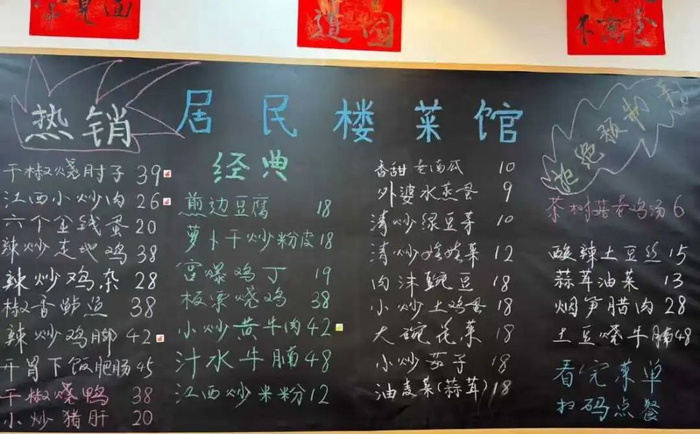 居民楼菜馆
热销
干椒烧肘子 39
江西小炒肉 26
六个金钱蛋 20
辣炒走地鸡 38
辣炒鸡杂 28
椒香鲈鱼 38
辣炒鸡脚 42
开胃下饭肥肠 45
干椒烧鸭 38
小炒猪肝 20
经典
煎边豆腐 18
萝卜干炒粉皮 18
宫爆鸡丁 19
板栗烧鸡 38
小炒黄牛肉 42
汁水牛腩 48
江西炒米粉 12
香甜老南瓜 10
外婆水蒸蛋 9
清炒绿豆芽 10
清炒娃娃菜 12
肉沫豌豆 18
小炒土鸡蛋 18
大碗花菜 18
小炒茄子 18
油麦菜(蒜茸) 18
拒绝预制菜
茶树菇炖鸡汤 6
酸辣土豆丝 15
蒜茸油菜 13
焖笋腊肉 28
土豆烧牛腩 48
看完菜单
扫码点餐